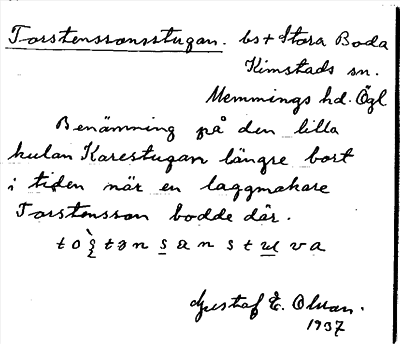 Torstenssonsstugan. bs+ Stora Boda
Kimstads sn.
Memmings hd. Ögl
Benämning på den lilla
kulan Karestugan längre bort
i tiden när en laggmakare
Torstensson bodde där.
Gustaf E. Olsson.
1937